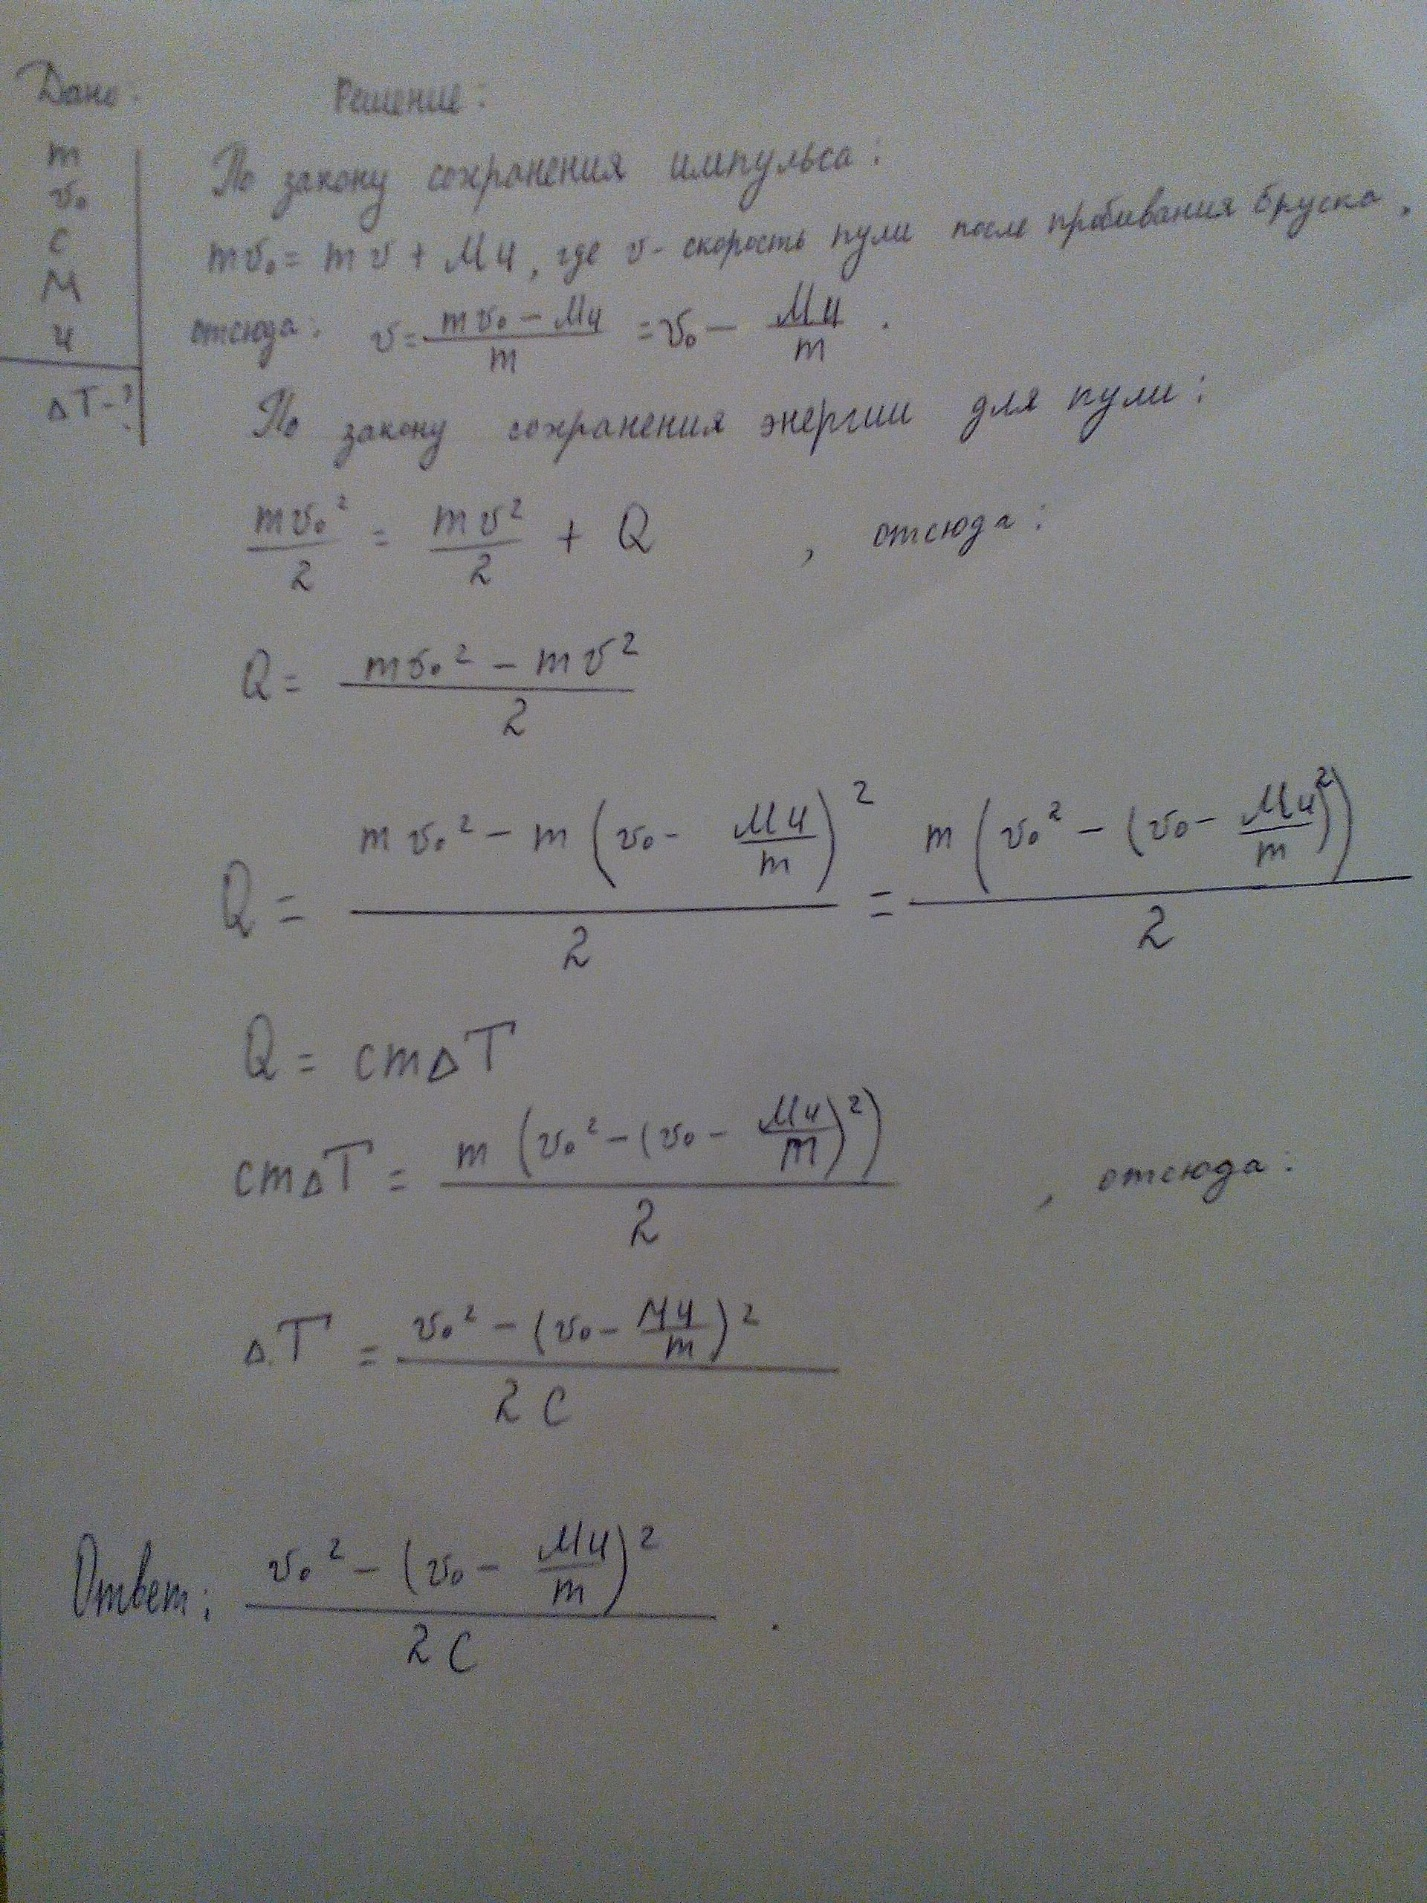 Дано:
m
v₀
c
M
u
ΔT-?
Решение:
По закону сохранения импульса:
mv₀ = mv + Mu, где v - скорость пули после пробивания бруска,
отсюда: v = (mv₀ - Mu)/m = v₀ - Mu/m .
По закону сохранения энергии для пули:
mv₀²/2 = mv²/2 + Q , отсюда:
Q = (mv₀² - mv²)/2
Q = (mv₀² - m(v₀ - Mu/m)²)/2 = m(v₀² - (v₀ - Mu/m)²)/2
Q = cmΔT
cmΔT = m(v₀² - (v₀ - Mu/m)²)/2 , отсюда:
ΔT = (v₀² - (v₀ - Mu/m)²)/2c
Ответ: (v₀² - (v₀ - Mu/m)²)/2c .